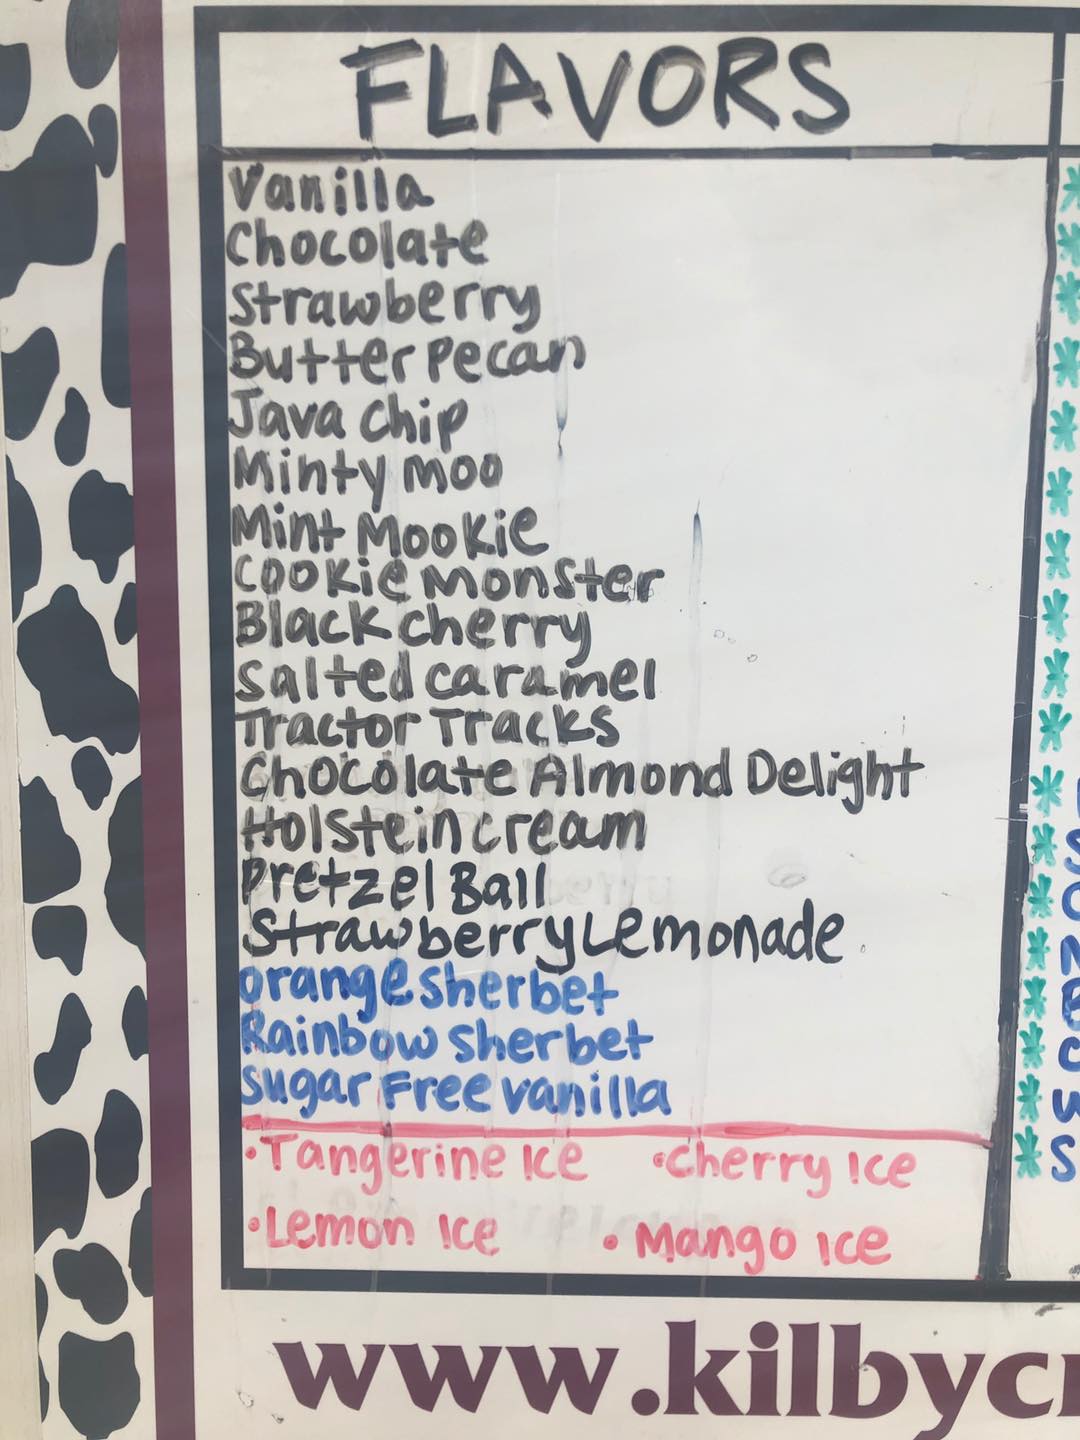 FLAVORS
Vanilla
Chocolate
Strawberry
Butter Pecan
Java Chip
Minty moo
Mint Mookie
Cookie Monster
Black cherry
salted caramel
Tractor Tracks
Chocolate Almond Delight
Holstein cream
Pretzel Ball
Strawberry Lemonade
orange sherbet
Rainbow sherbet
sugar Free vanilla
•Tangerine Ice •Cherry Ice
•Lemon Ice •Mango Ice
www.kilbycr